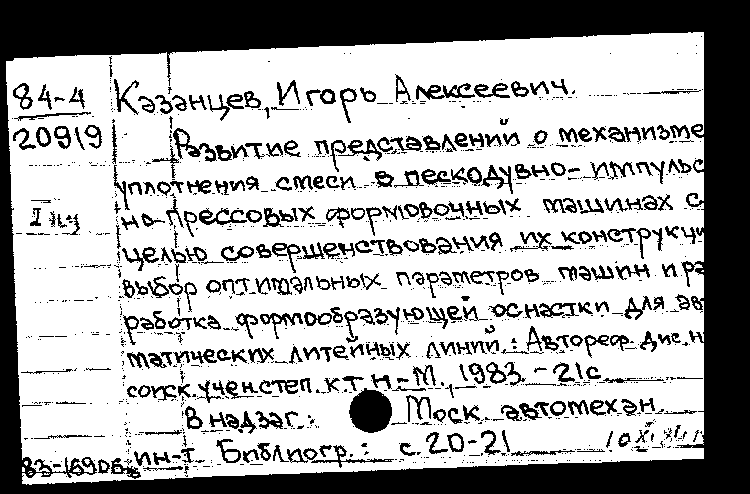 84-4 Казанцев, Игорь Алексеевич.
20919 Развитие представлений о механизме
уплотнения смеси в пескодувно-импульс
но-прессовых формовочных машинах с
целью совершенствования их конструкци
выбор оптимальных параметров машин и ра
работка формообразующей оснастки для ав
матических литейных линий.: Автореф. Дис. н
соиск. учен. степ. к.т.н. - М., 1983. - 21с
В надзаг.: Моск. автомехан.
ин-т. Библиогр.: с. 20-21
83-16906